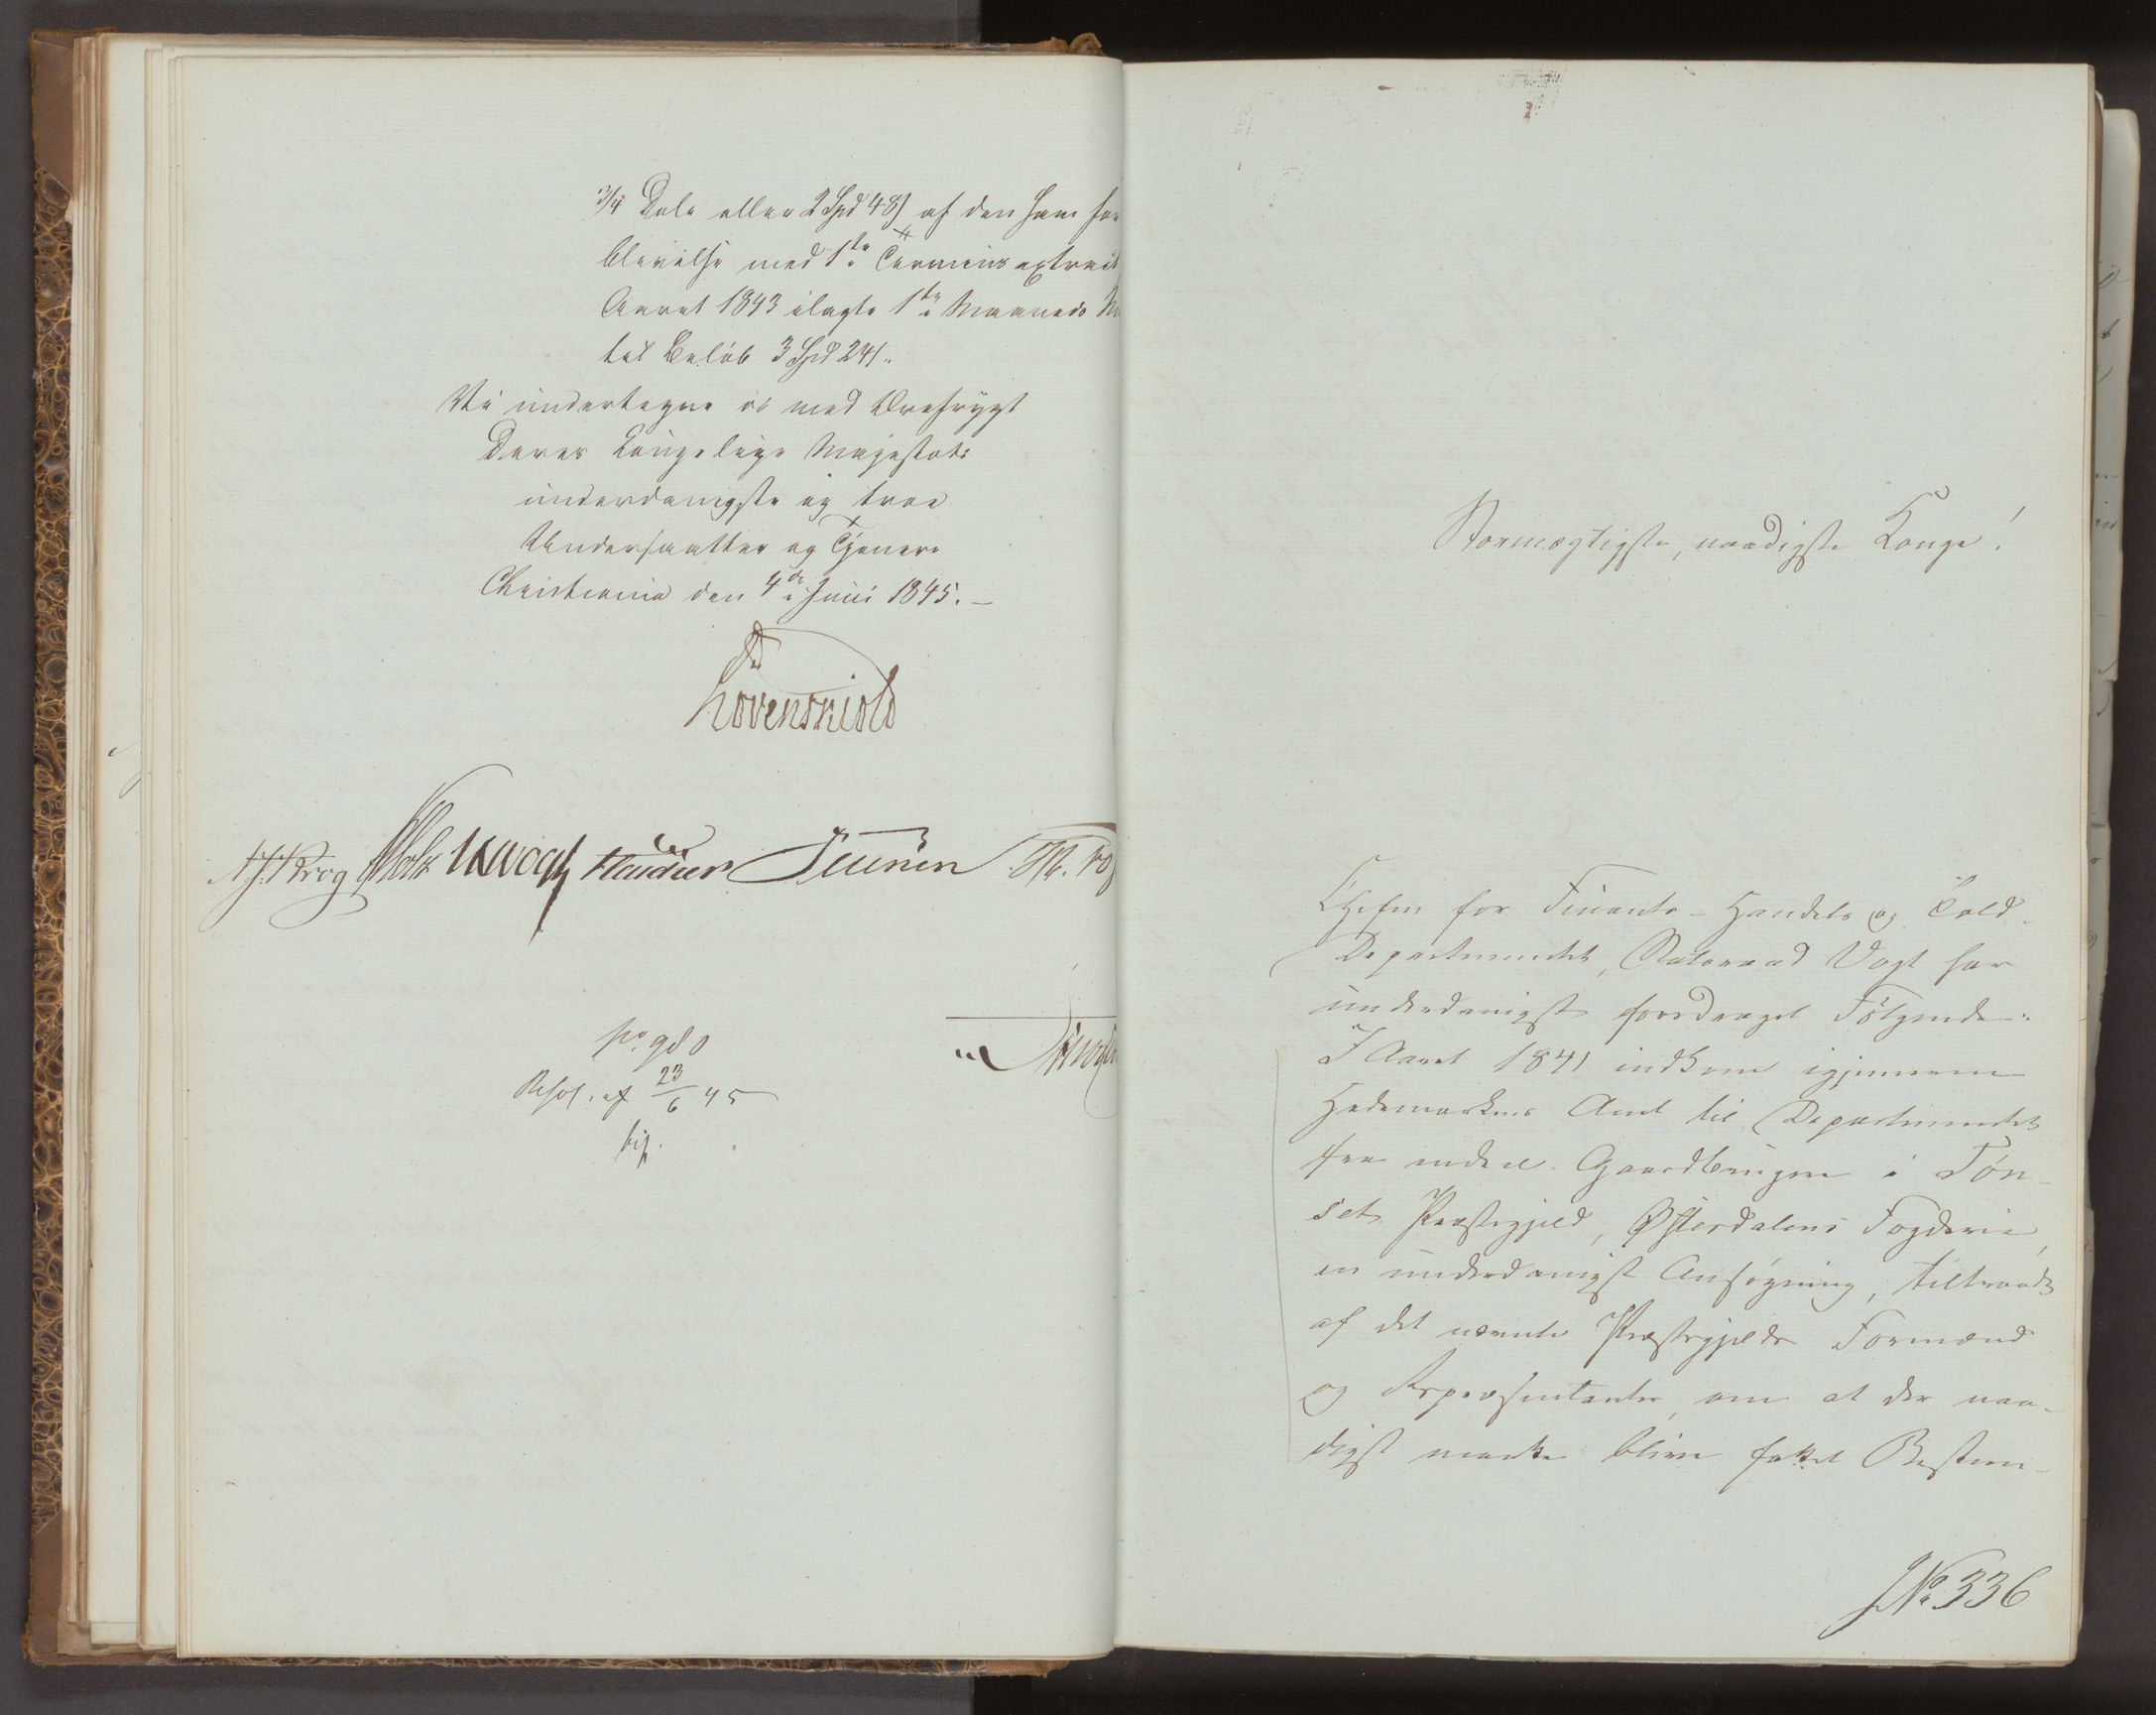 3/4 Dele eller 2 Spd 48 /) af den ham for
blivelse med 1ste Termins extrait
Aaret 1843 ilagte 1ste Maaneds M
tal Beløb 3 Spd 24 /..
Vi undertegne os med Ærefrygt
Deres Kongelige Majestæts
underdanigste og troe
Undersaatter og Tjenere
Christiania den 4de Juni 1845.
Løvenskiold
N. J. Krog Holst Vogt Hauduer Petersen
Resol. af 23/6 45
Stormægtigste, naadigste Konge!
Chefen for Finants- Handels og Told-
Departementet, Statsraad Vogt har
underdanigst foredraget Følgende:
I Aaret 1841 indkom igjennem
Hedemarkens Amt til Departementet
fra endeel Gaardbrugere i Tøn-
set Præstegjeld, Østerdalens Fogderie,
en underdanigst Ansøgning, tiltraadt
af det nævnte Præstegjelds Formænd
og Repræsentanter, om at der naa-
digst maatte blive fattet Bestem-
No 336